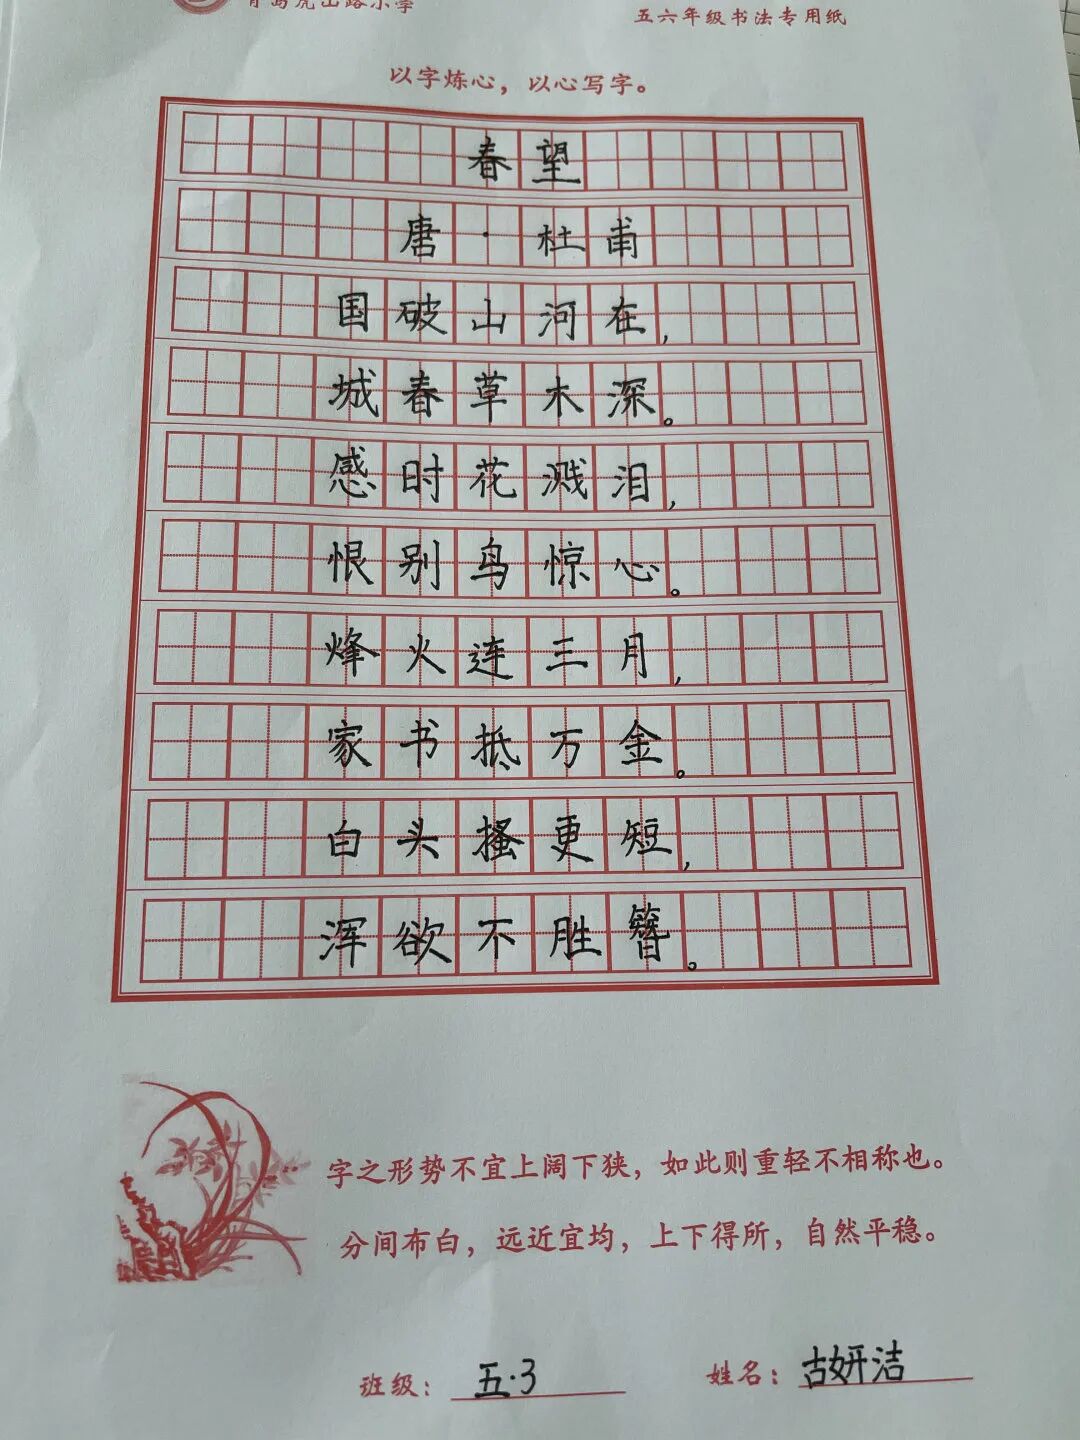 青岛虎山路小学
五六年级书法专用纸
以字炼心，以心写字。
春望
唐·杜甫
国破山河在，
城春草木深。
感时花溅泪，
恨别鸟惊心。
烽火连三月，
家书抵万金。
白头搔更短，
浑欲不胜簪。
字之形势不宜上阔下狭，如此则重轻不相称也。
分间布白，远近宜均，上下得所，自然平稳。
班级：五·3
姓名：古妍洁